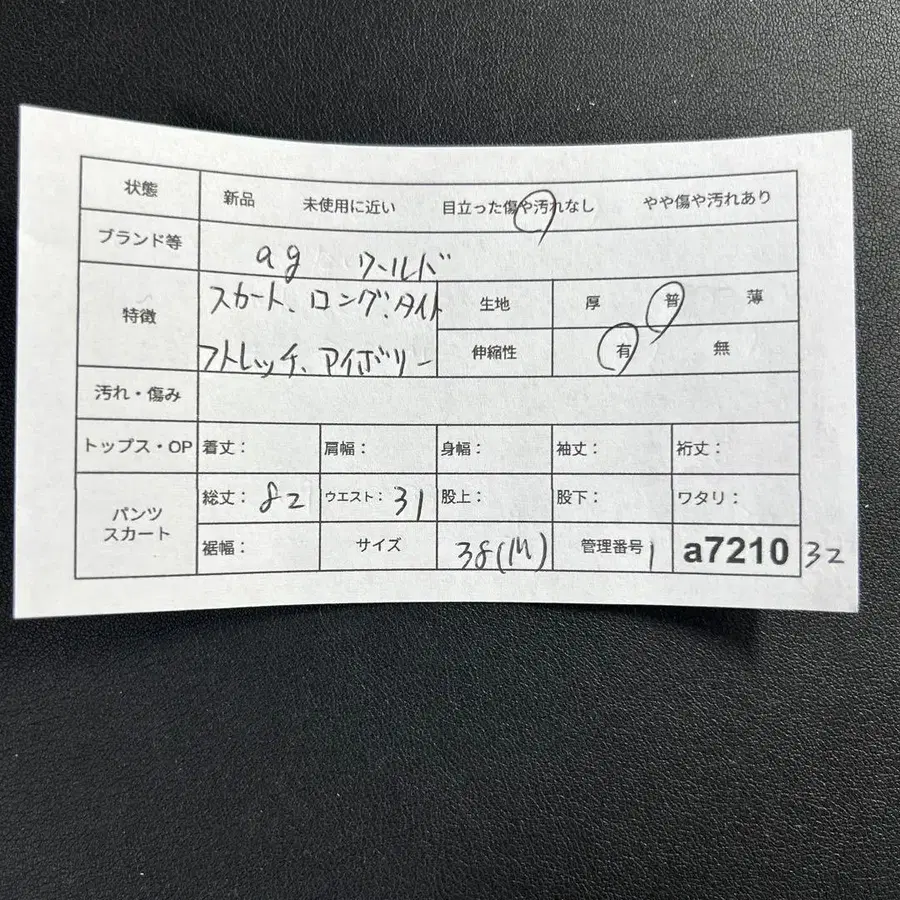 状態 新品 未使用に近い 目立った傷や汚れなし やや傷や汚れあり
ブランド等 ag ワールド
特徴 スカート、ロング、タイト
ストレッチ、アイボリー
生地 厚 普 薄
伸縮性 有 無
汚れ・傷み
トップス・OP 着丈: 肩幅: 身幅: 袖丈: 裄丈:
パンツ スカート 総丈: 82 ウエスト: 31 股上: 股下: ワタリ:
裾幅: サイズ 38(M) 管理番号 1 a7210 32